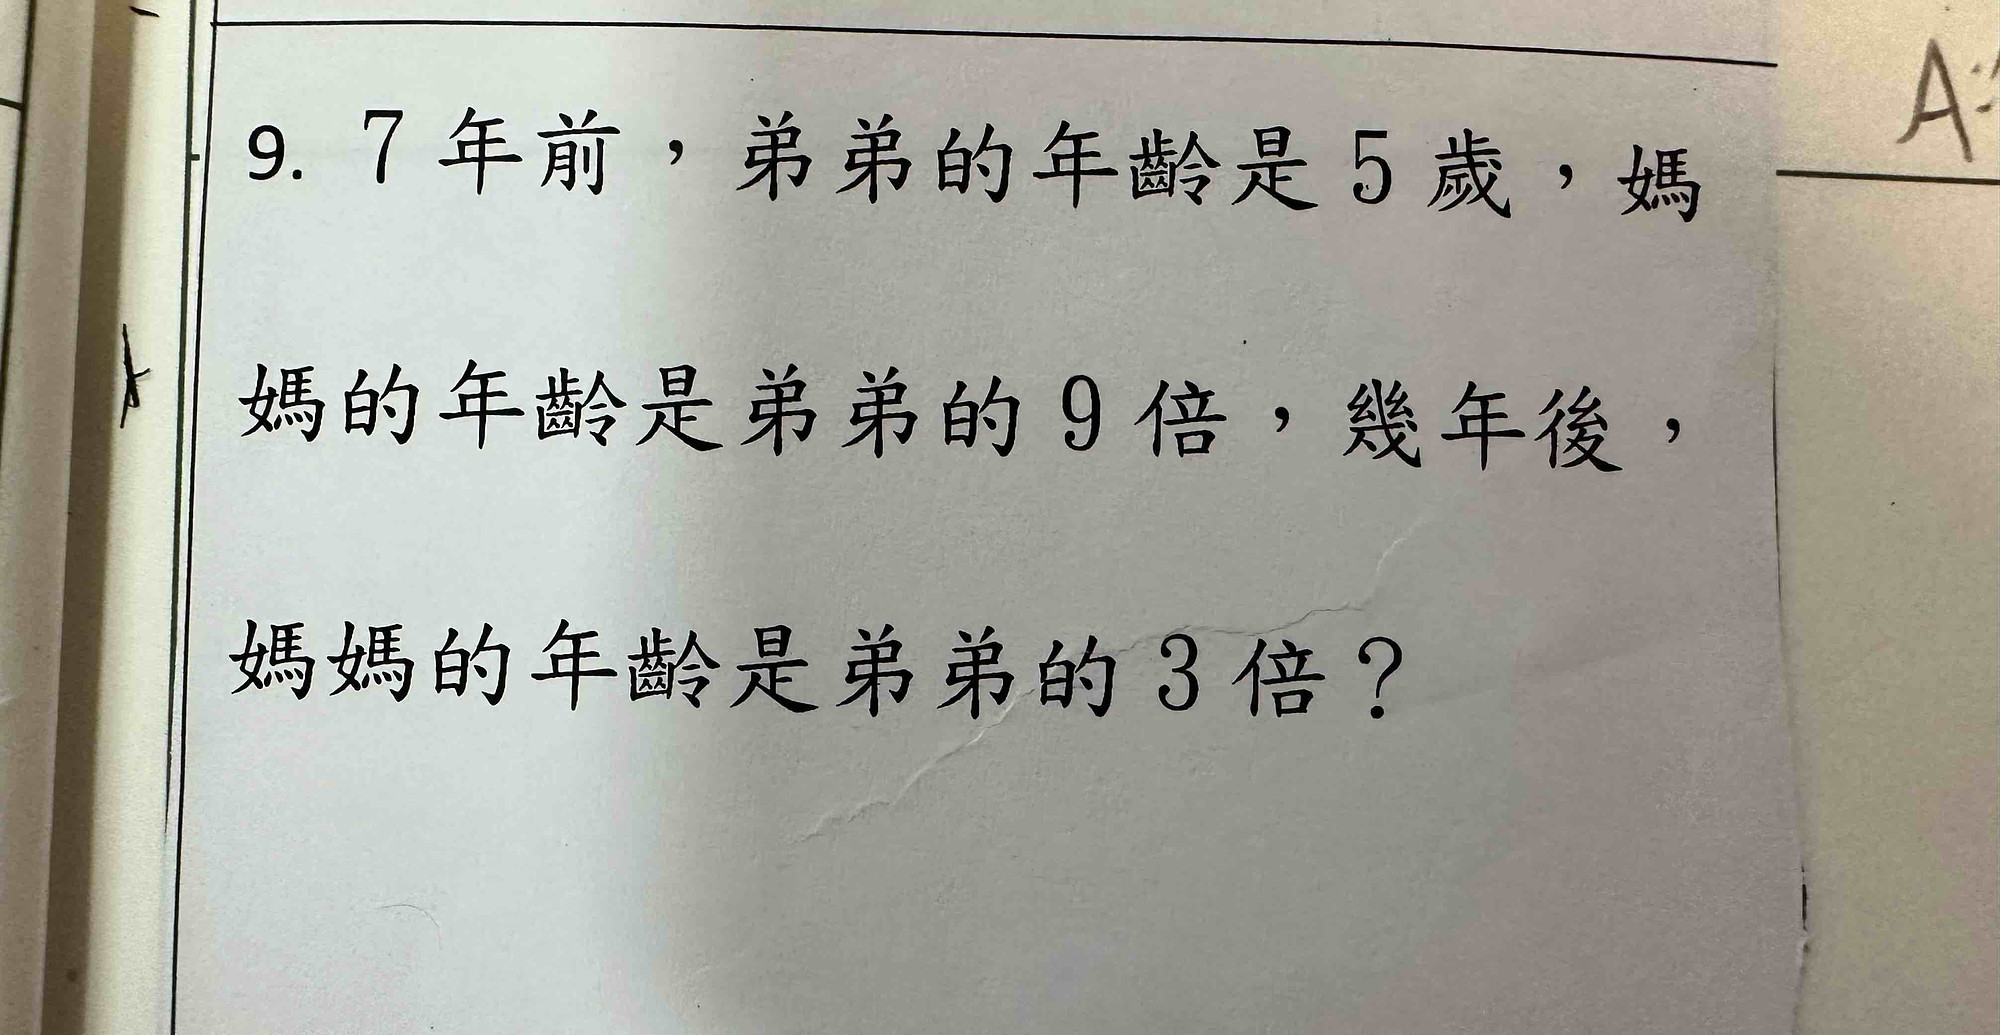 9. 7 年前，弟弟的年齡是 5 歲，媽
媽的年齡是弟弟的 9 倍，幾年後，
媽媽的年齡是弟弟的 3 倍？
A: